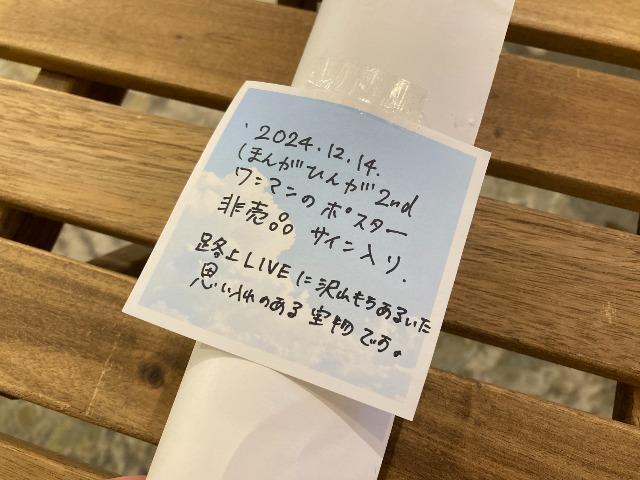 ・2024.12.14.
ほんがひんが2nd
ワンマンのポスター
非売品 サイン入り.
路上LIVEに沢山もちあるいた
思い入れのある宝物です。